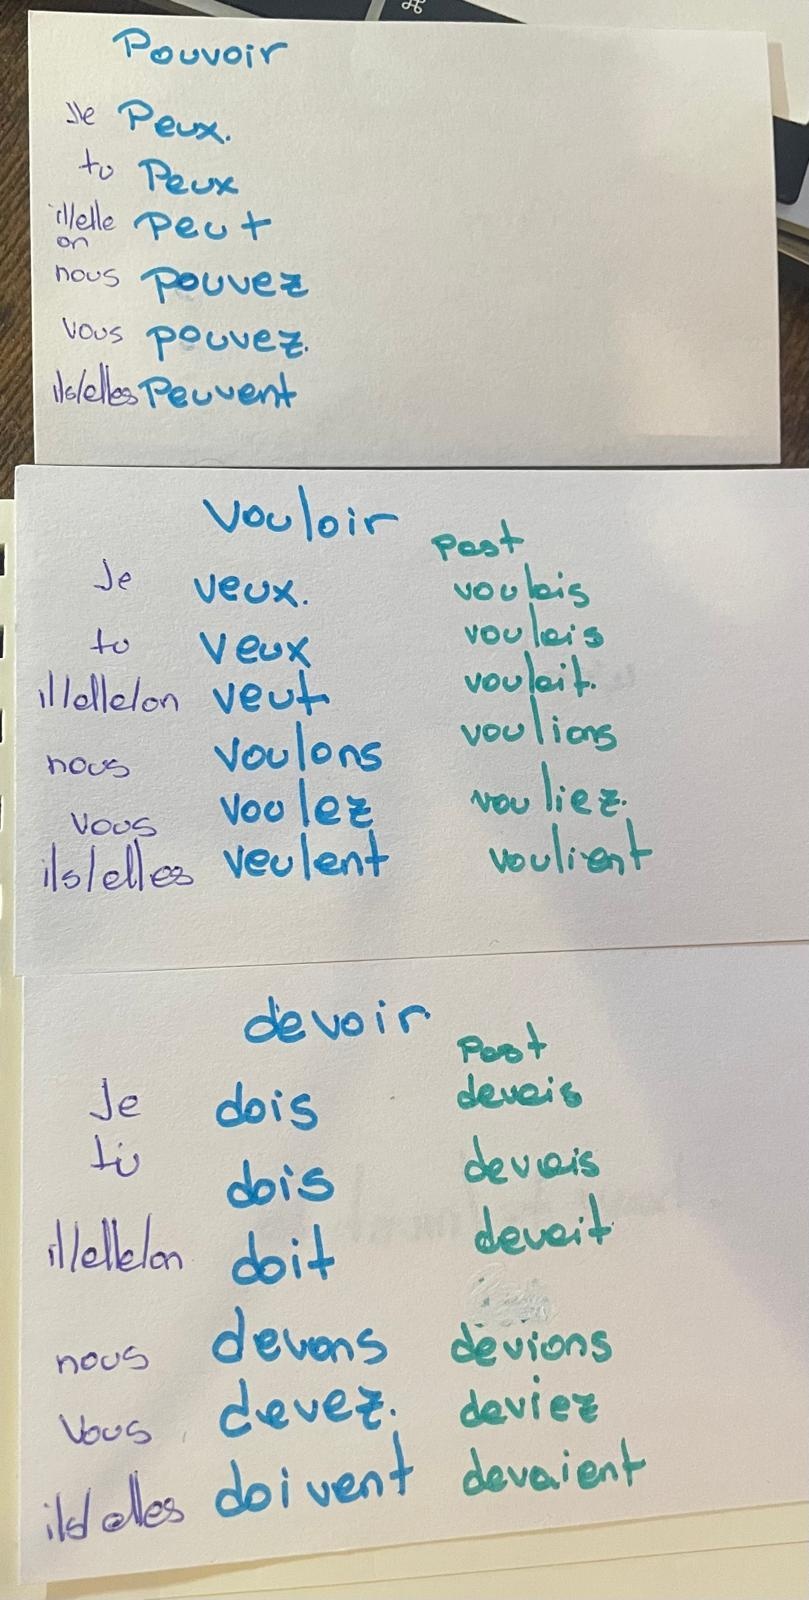 ⌘
Pouvoir
Je Peux.
tu Peux
il/elle
on Peut
nous pouvez
vous pouvez.
ils/elles Peuvent
vouloir
Past
Je veux. voulais
tu veux voulais
il/elle/on veut voulait.
nous voulons voulions
vous voulez vouliez.
ils/elles veulent voulient
devoir.
Past
Je dois devais
tu dois devais
il/elle/on doit devait
nous devons devions
vous devez. deviez
ils/elles doivent devaient